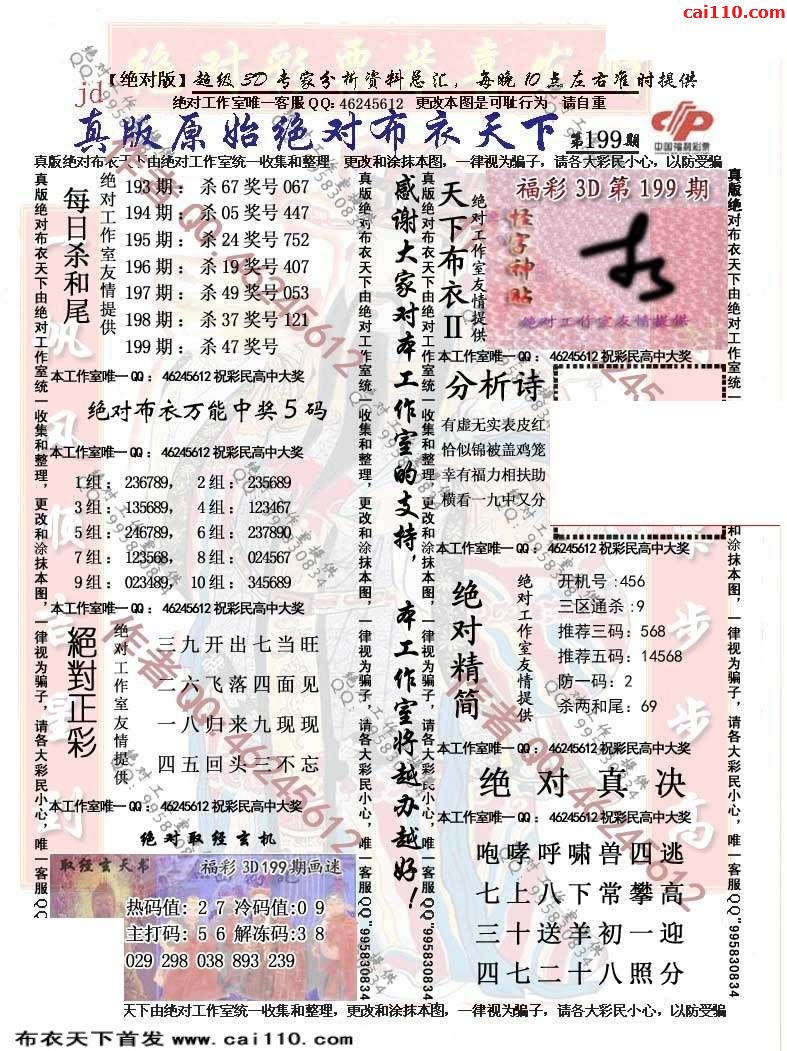 cai110.com
【绝对版】超级3D专家分析资料总汇，每晚10点左右准时提供
jd
绝对工作室唯一客服QQ: 46245612 更改本图是可耻行为 请自重
真版原始绝对布衣天下 第199期
中国福利彩票
真版绝对布衣天下由绝对工作室统一收集和整理，更改和涂抹本图，一律视为骗子，请各大彩民小心，以防受骗
每日杀和尾
绝对工作室友情提供
193期：杀67奖号067
194期：杀05奖号447
195期：杀24奖号752
196期：杀19奖号407
197期：杀49奖号053
198期：杀37奖号121
199期：杀47奖号
本工作室唯一QQ：46245612祝彩民高中大奖
绝对布衣万能中奖5码
本工作室唯一QQ：46245612祝彩民高中大奖
1组：236789， 2组：235689
3组：135689， 4组：123467
5组：246789， 6组：237890
7组：123568， 8组：024567
9组：023489， 10组：345689
本工作室唯一QQ：46245612祝彩民高中大奖
絕對正彩
绝对工作室友情提供
三九开出七当旺
二六飞落四面见
一八归来九现现
四五回头三不忘
本工作室唯一QQ：46245612祝彩民高中大奖
绝对取经玄机
取经玄天书 福彩3D199期画迷
热码值：27冷码值:09
主打码：56解冻码:38
029 298 038 893 239
真版绝对布衣天下由绝对工作室统一收集和整理，更改和涂抹本图，一律视为骗子，请各大彩民小心，唯一客服QQ
真版绝对布衣天下由绝对工作室统一收集和整理，更改和涂抹本图，一律视为骗子，请各大彩民小心，唯一客服QQ"995830834
感谢大家对本工作室的支持，本工作室将越办越好！
真版绝对布衣天下由绝对工作室统一收集和整理，更改和涂抹本图，一律视为骗子，请各大彩民小心，唯一客服QQ"995830834
天下布衣II
绝对工作室友情提供
福彩3D第199期
怪字神贴
绝对工作室友情提供
本工作室唯一QQ：46245612祝彩民高中大奖
分析诗
有虚无实表皮红
恰似锦被盖鸡笼
幸有福力相扶助
横看一九中又分
本工作室唯一QQ：46245612祝彩民高中大奖
绝对精简
绝对工作室友情提供
开机号:456
三区通杀:9
推荐三码:568
推荐五码:14568
防一码:2
杀两和尾:69
本工作室唯一QQ：46245612祝彩民高中大奖
绝对真决
本工作室唯一QQ：46245612祝彩民高中大奖
咆哮呼啸兽四逃
七上八下常攀高
三十送羊初一迎
四七二十八照分
真版绝对布衣天下由绝对工作室统一
和涂抹本图，一律视为骗子，请各大彩民小心，唯一客服QQ"995830834
天下由绝对工作室统一收集和整理，更改和涂抹本图，一律视为骗子，请各大彩民小心，以防受骗
作者QQ:46245612
布衣天下首发 www.cai110.com